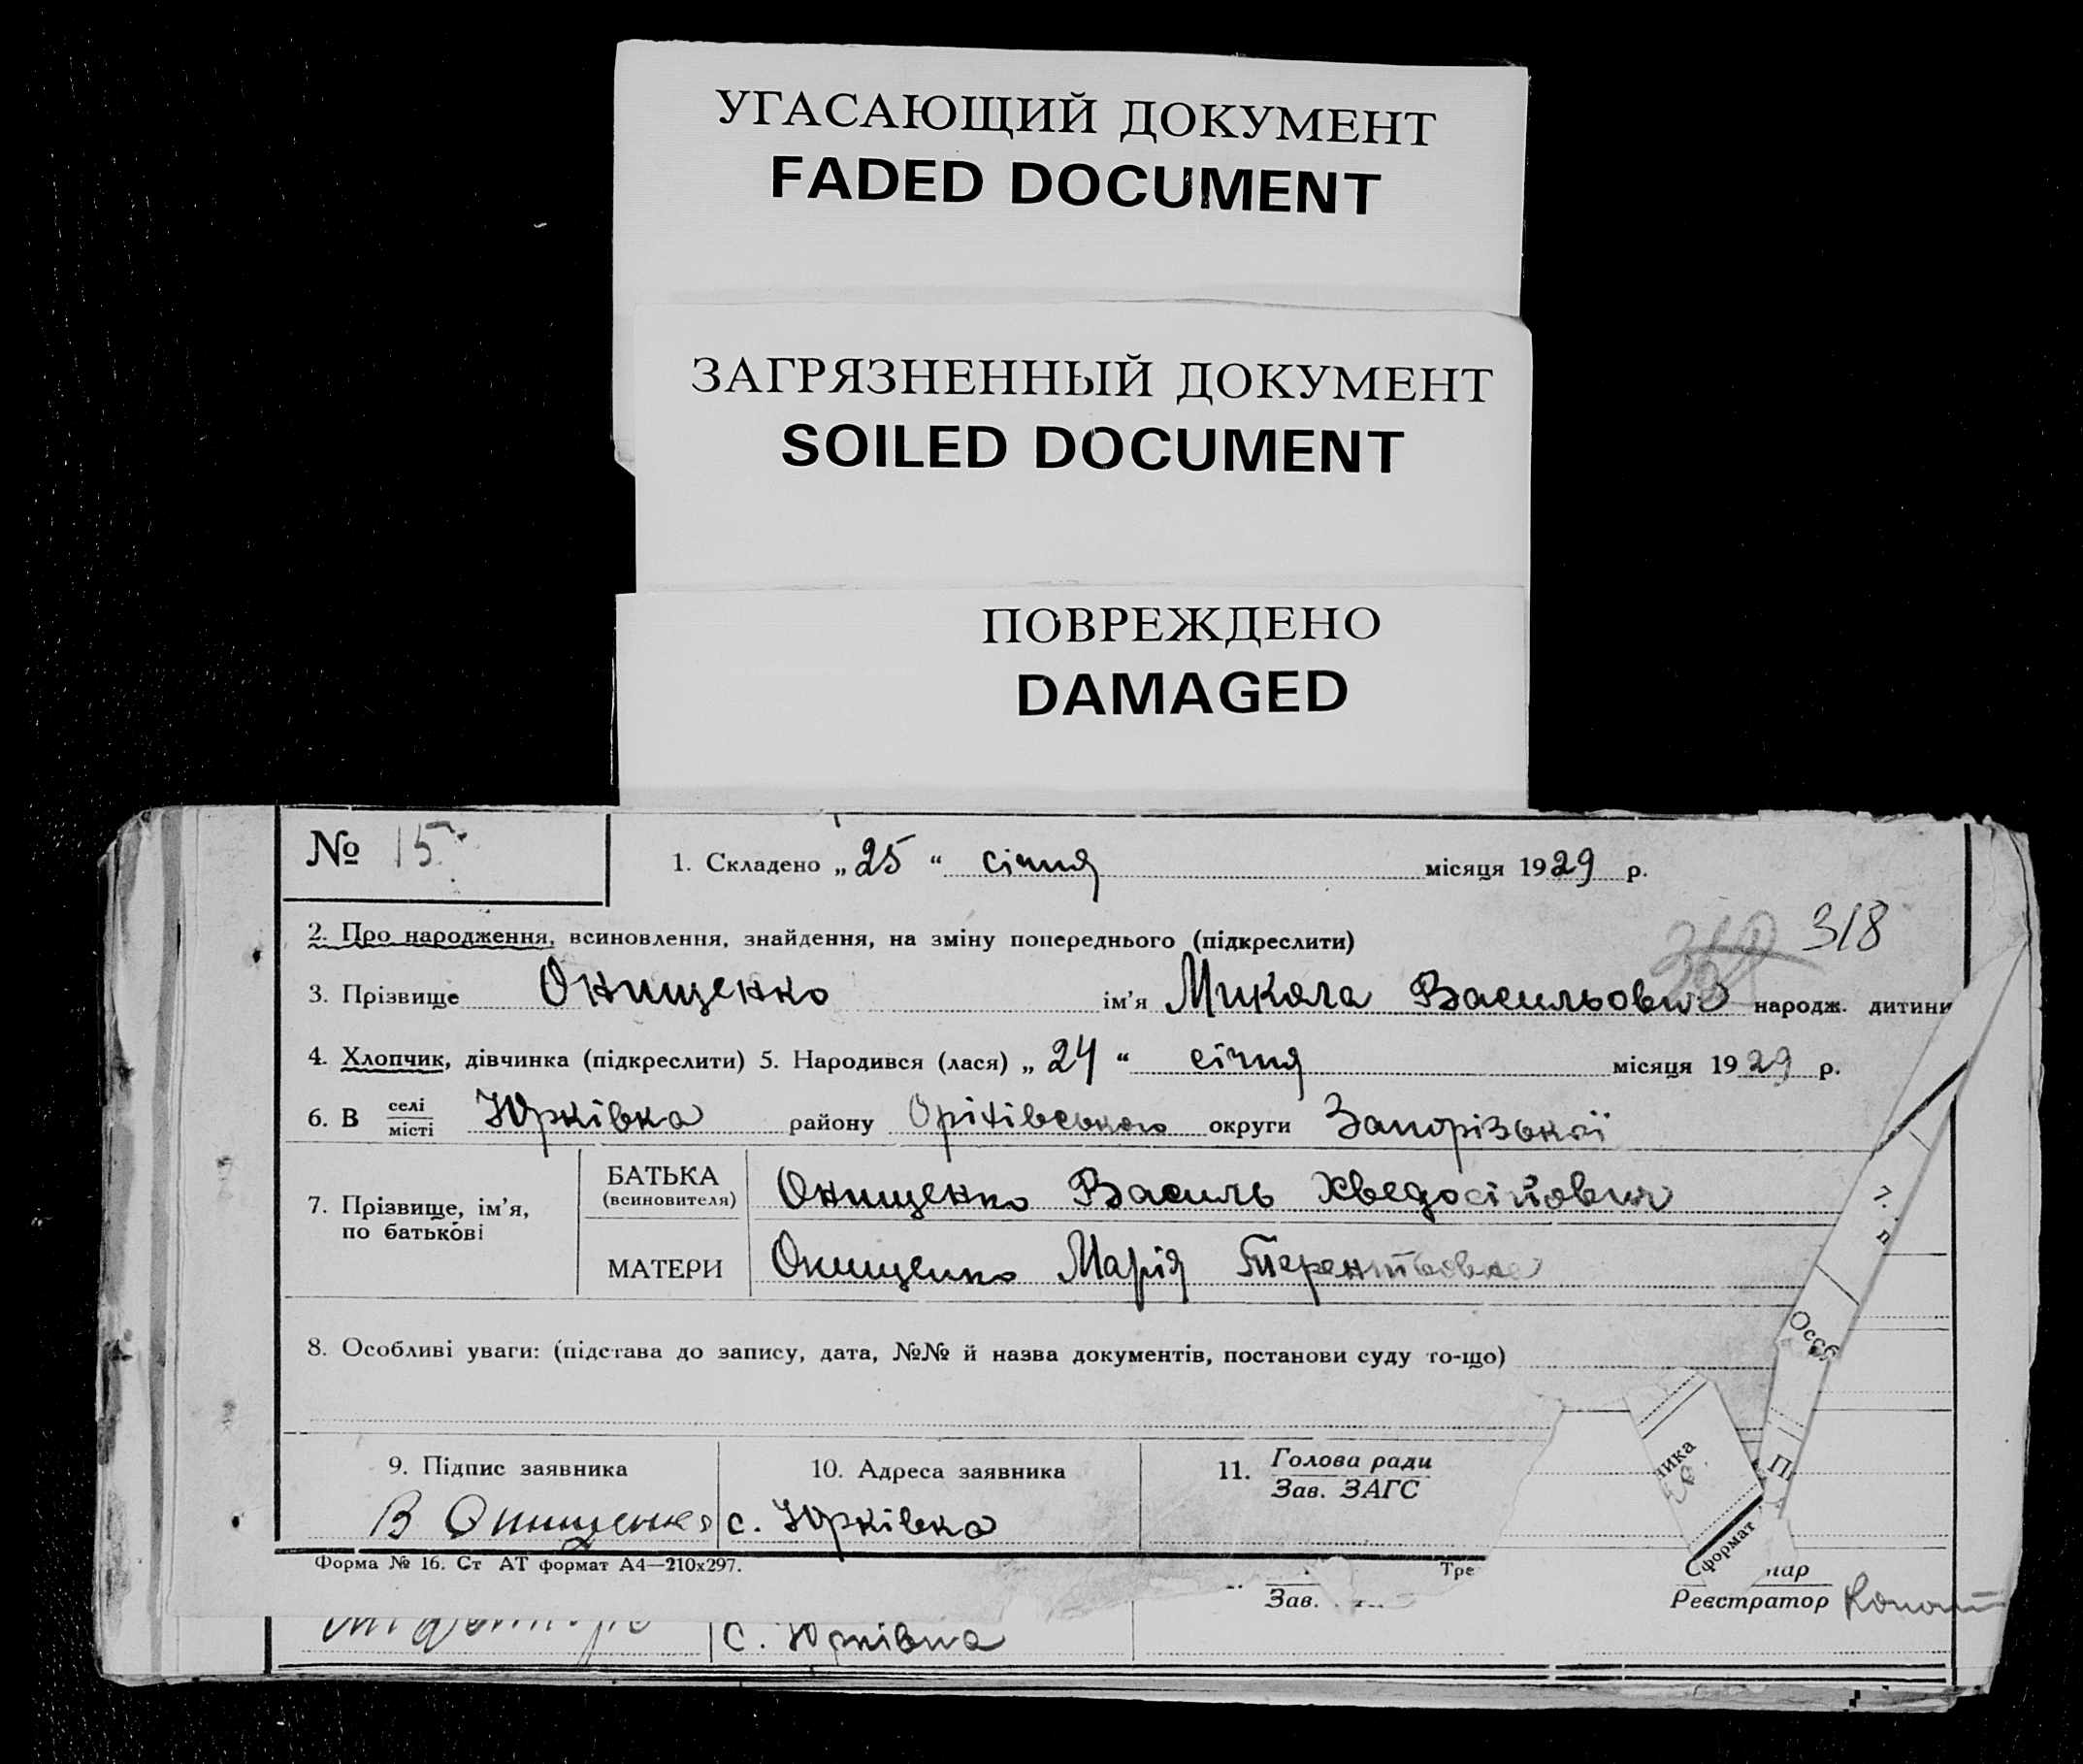 УГАСАЮЩИЙ ДОКУМЕНТ
FADED DOCUMENT
ЗАГРЯЗНЕННЫЙ ДОКУМЕНТ
SOILED DOCUMENT
ПОВРЕЖДЕНО
DAMAGED
№ 15
1. Складено „25“ січня місяця 1929 р.
2. Про народження, всиновлення, знайдення, на зміну попереднього (підкреслити) 318
3. Прізвище Онищенко ім'я Микола Васильович народж. дитини
4. Хлопчик, дівчинка (підкреслити) 5. Народився (лася) „24“ січня місяця 1929 р.
6. В селі місті Юрківка району Оріхівського округи Запорізької
7. Прізвище, ім'я, по батькові
БАТЬКА (всиновителя) Онищенко Василь Хведосійович
МАТЕРИ Онищенко Марія
8. Особливі уваги: (підстава до запису, дата, №№ й назва документів, постанови суду то-що)
9. Підпис заявника 10. Адреса заявника 11. Голова ради Зав. ЗАГС
В Онищенко с. Юрківка
Форма № 16. Ст АТ формат А4—210х297. Тре
7. п
Особ
лика
формат
Зав.
Реєстратор
с. Юрківка